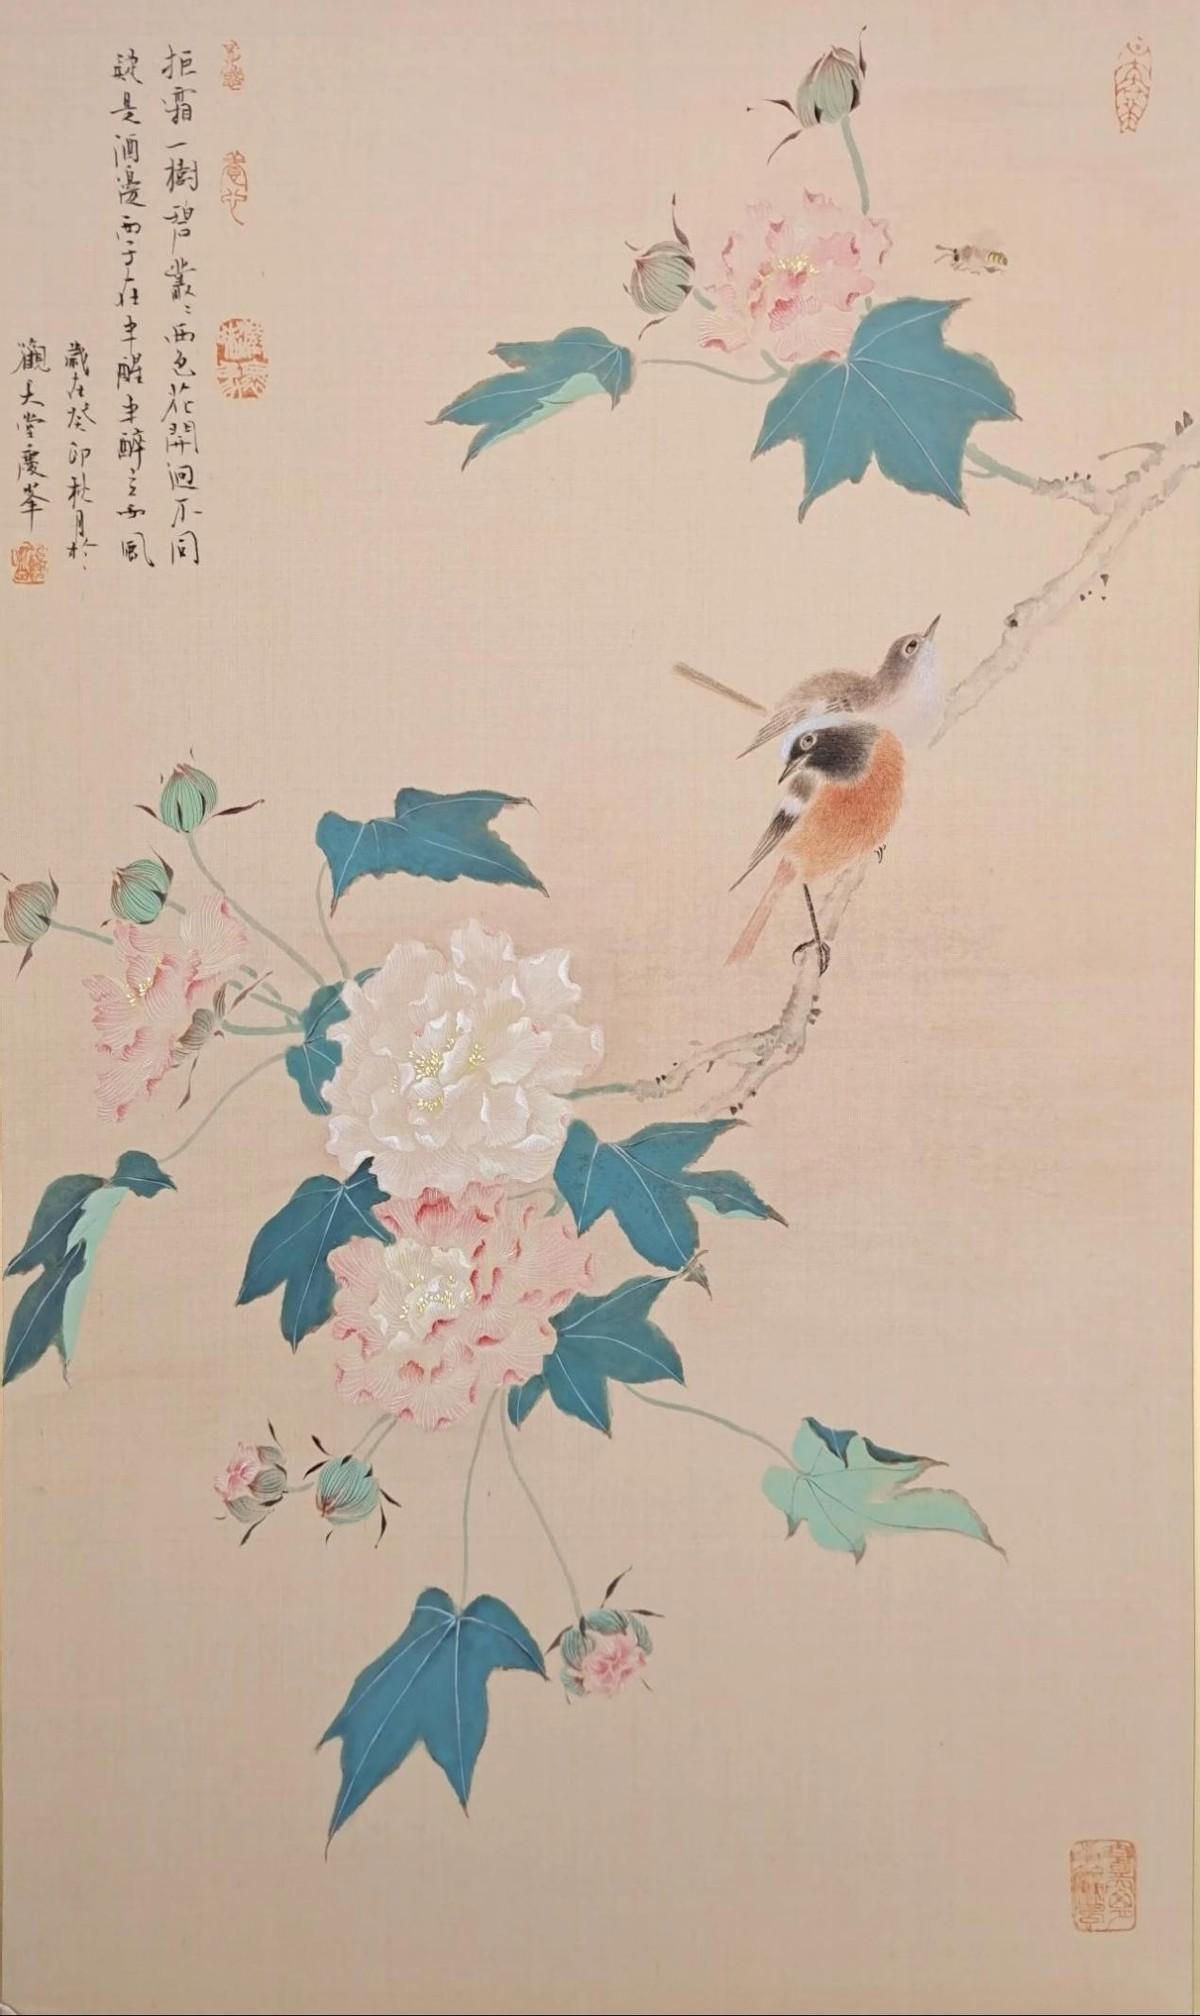 拒霜一樹碧叢叢両色花開迥不同
疑是酒邊西子在半醒半醉立西風
歲在癸卯秋月於
觀大堂慶峯